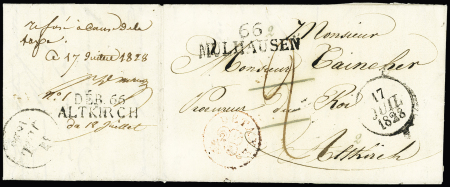 refusé à cause de la
taxe.
a 17 Juillet 1828
DEB. 66
ALTKIRCH
du 18 Juillet
66
MULHAUSEN
Monsieur
Monsieur
Procureur du Roi
Altkirch
17
JUIL
1828